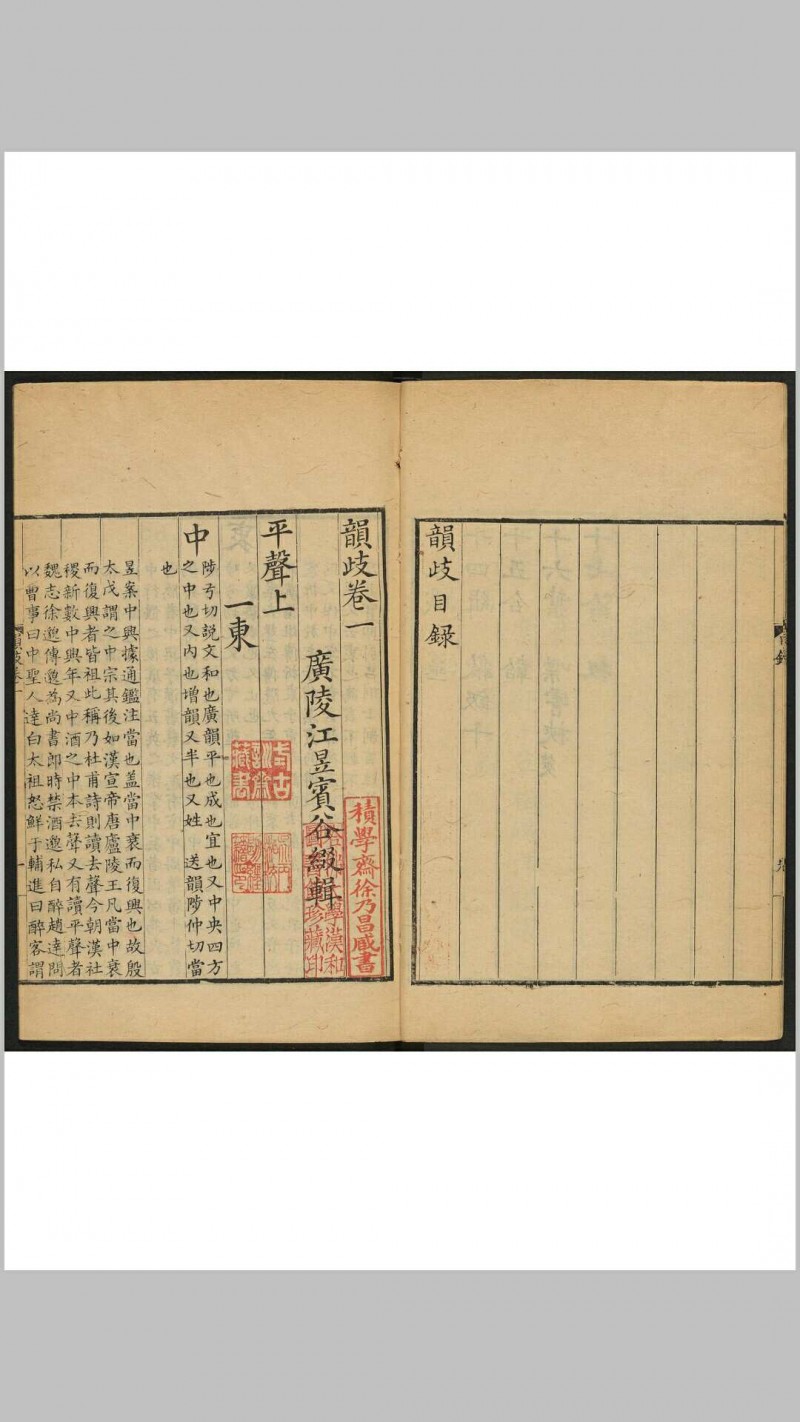 韻歧目錄
韻歧卷一
積學齋徐乃昌臧書
廣陵江昱賓谷綴輯
平聲上
一東
中
陟亏切說文和也廣韻平也成也宜也又中央四方
之中也又内也增韻又半也又姓　送韻陟仲切當
也
昱案中興據通鑑注當也盖當中衰而復興也故殷
太戊謂之中宗其後如漢宣帝唐廬陵王凡當中衰
而復興者皆祖此稱乃杜甫詩則讀去聲今朝漢社
稷新數中興年又中酒之中本去聲又有讀平聲者
魏志徐邈傳邈為尚書郎時禁酒邈私自醉趙達問
以曹事曰中聖人達白太祖怒鮮于輔進曰醉客謂
韻歧卷一